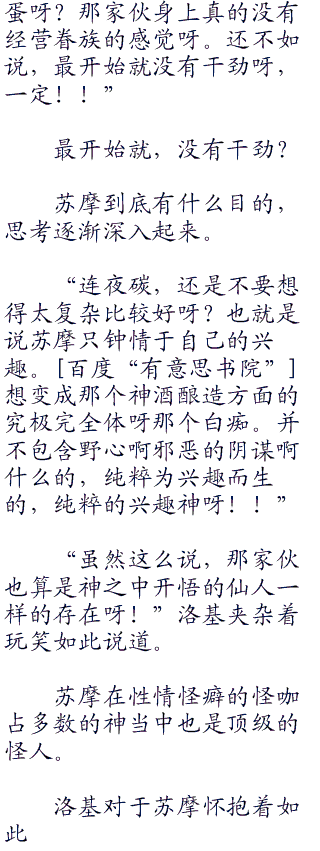 蛋呀？那家伙身上真的没有
经营眷族的感觉呀。还不如
说，最开始就没有干劲呀，
一定！！”
最开始就，没有干劲？
苏摩到底有什么目的，
思考逐渐深入起来。
“连夜碳，还是不要想
得太复杂比较好呀？也就是
说苏摩只钟情于自己的兴
趣。[百度“有意思书院”]
想变成那个神酒酿造方面的
究极完全体呀那个白痴。并
不包含野心啊邪恶的阴谋啊
什么的，纯粹为兴趣而生
的，纯粹的兴趣神呀！！”
“虽然这么说，那家伙
也算是神之中开悟的仙人一
样的存在呀！”洛基夹杂着
玩笑如此说道。
苏摩在性情怪癖的怪咖
占多数的神当中也是顶级的
怪人。
洛基对于苏摩怀抱着如
此